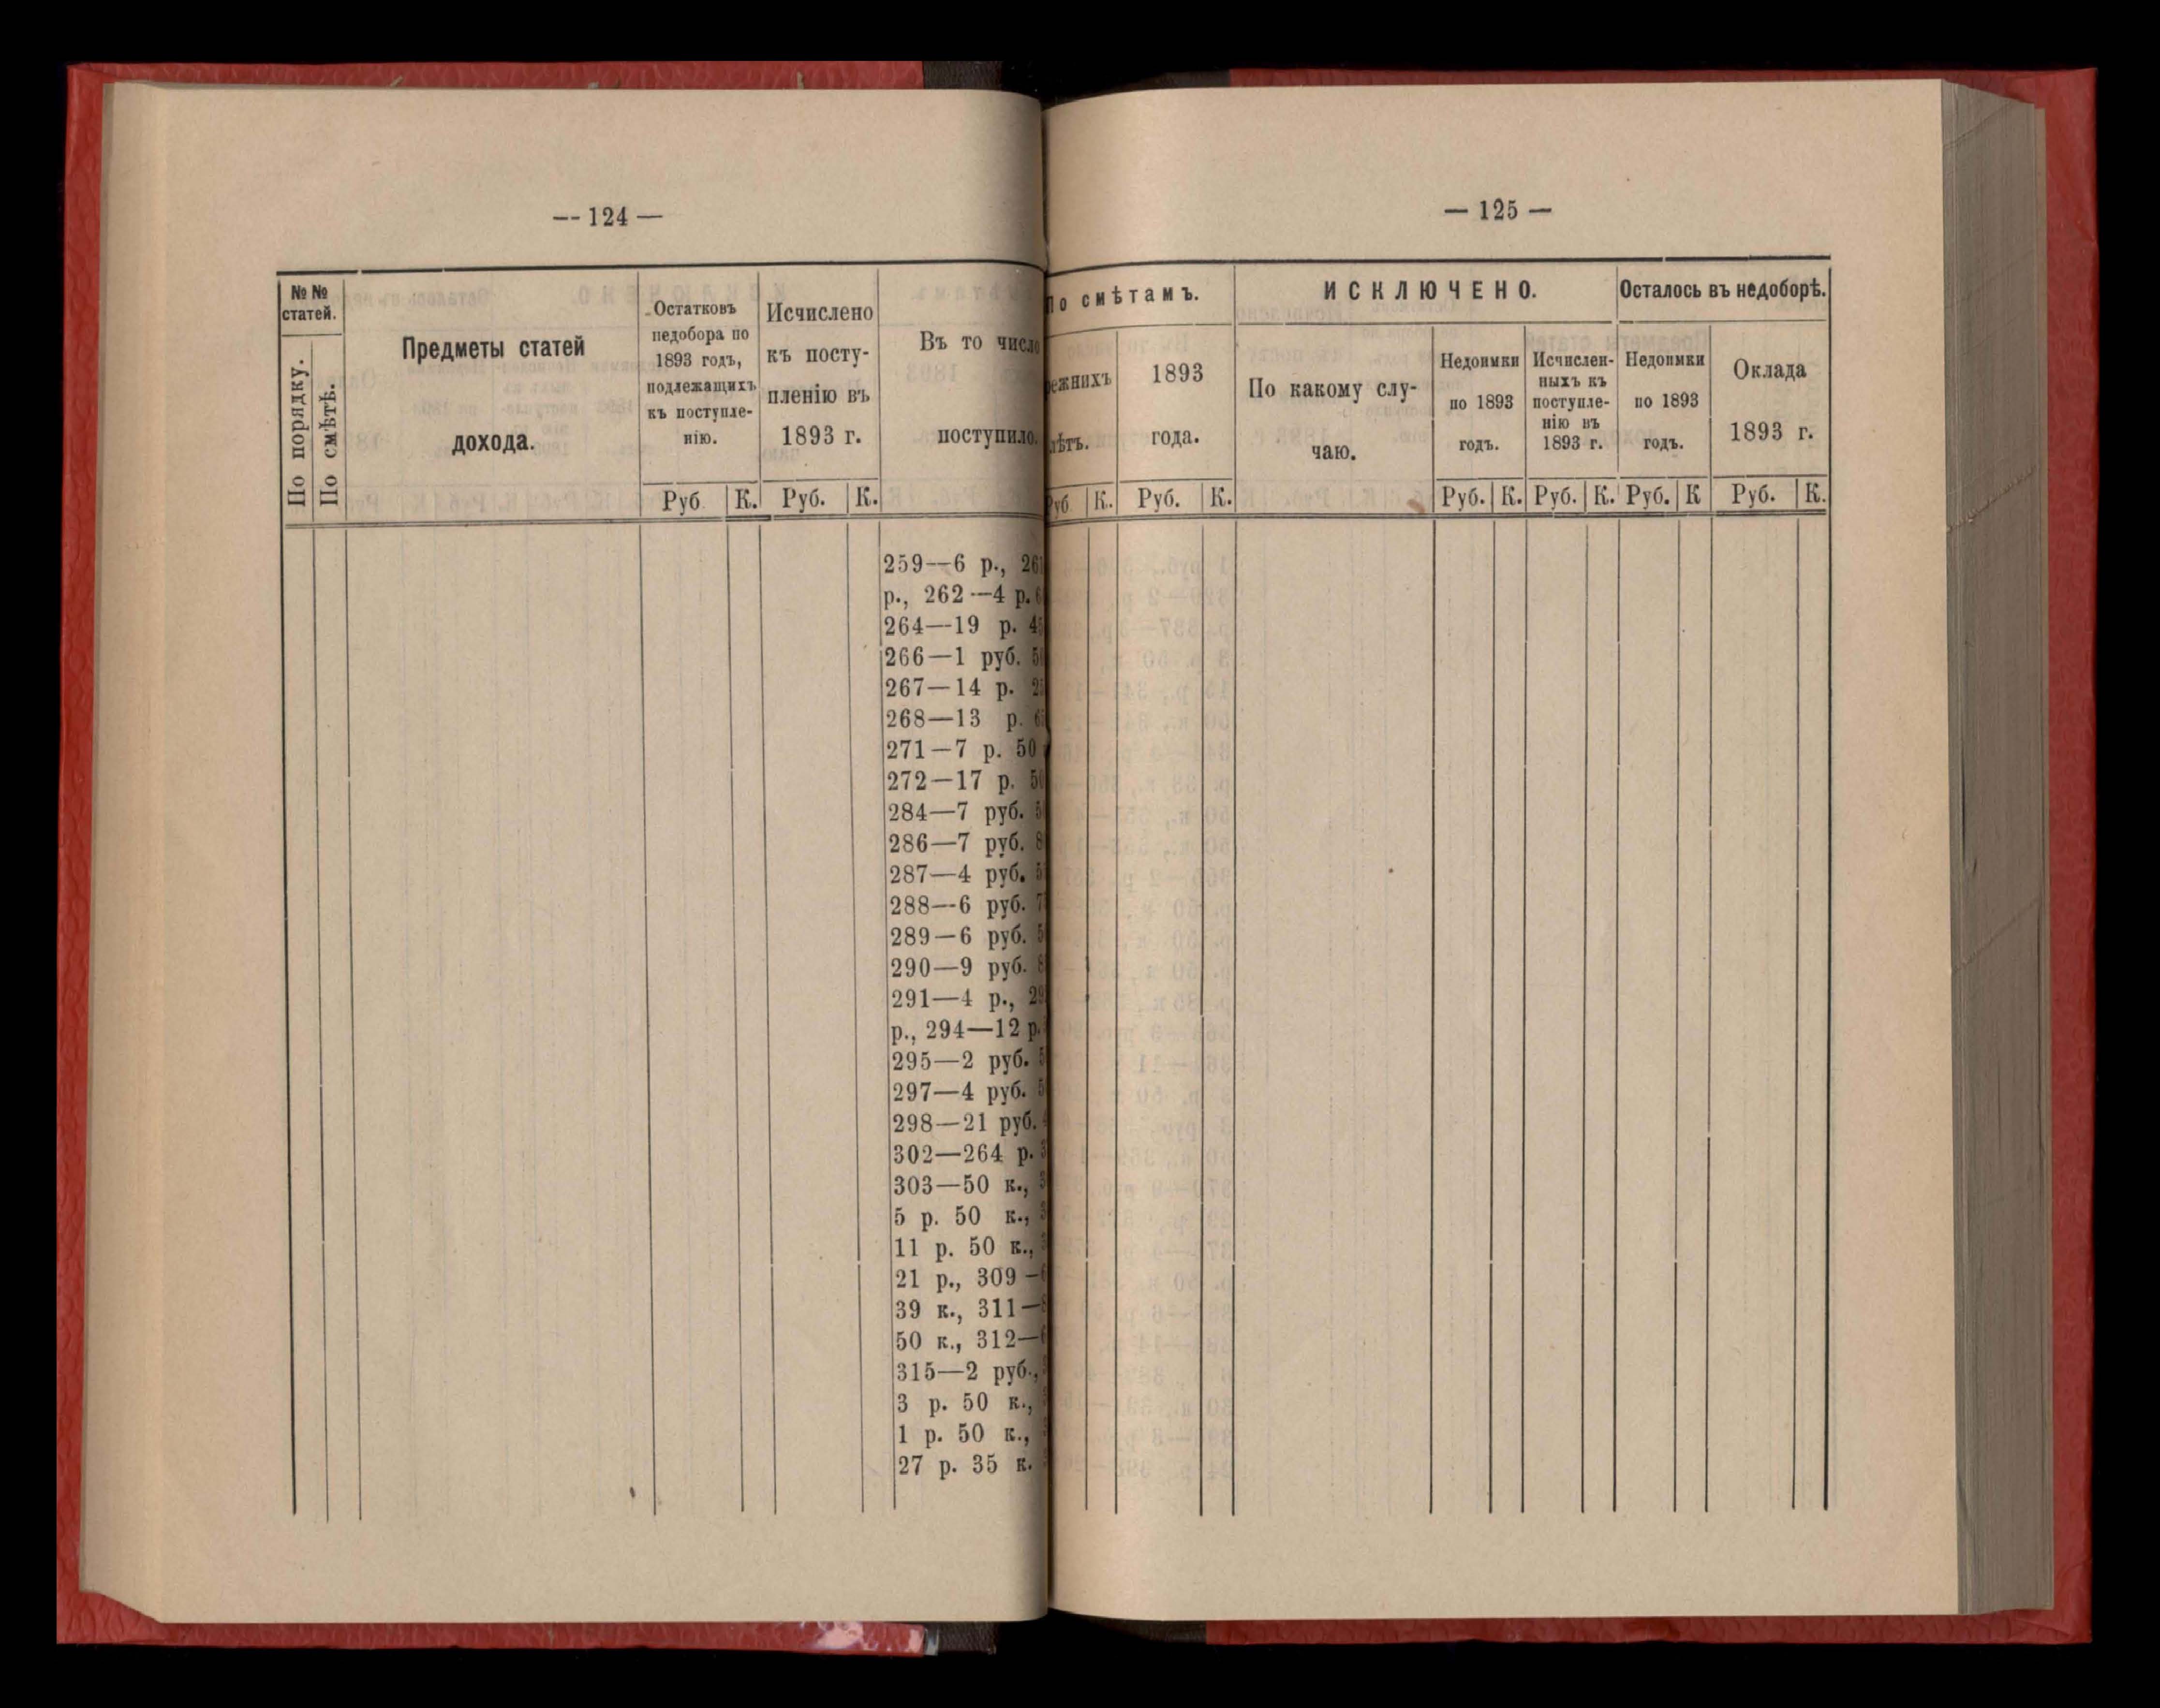 -- 124 —
№ №
статей.
По порядку.
По смѣтѣ.
Предметы статей
дохода.
Остатковъ
недобора по
1893 годъ,
подлежащихъ
къ поступле-
нію.
Исчислено
къ посту-
пленію въ
1893 г.
Въ то число
поступило.
Руб
К.
Руб.
К.
259—6 р.,
р., 262—4 р.
264—19 р.
266—1 руб.
267—14 р.
268—13 р.
271—7 р. 50
272—17 р.
284—7 руб.
286—7 руб.
287—4 руб.
288—6 руб.
289—6 руб.
290—9 руб.
291—4 р.,
р., 294—12 р.
295—2 руб.
297—4 руб.
298—21 руб.
302—264 р.
303—50 к.,
5 р. 50 к.,
11 р. 50 к.,
21 р., 309—
39 к., 311—
50 к., 312—
315—2 руб.,
3 р. 50 к.,
1 р. 50 к.,
27 р. 35 к.
— 125 —
По смѣтамъ.
режнихъ
лѣтъ.
1893
года.
ИСКЛЮЧЕНО.
По какому слу-
чаю.
Недоимки
по 1893
годъ.
Исчислен-
ныхъ къ
поступле-
нію въ
1893 г.
Осталось въ недоборѣ.
Недоимки
по 1893
годъ.
Оклада
1893 г.
Руб
К.
Руб.
К.
Руб.
К.
Руб.
К.
Руб.
К
Руб.
К.